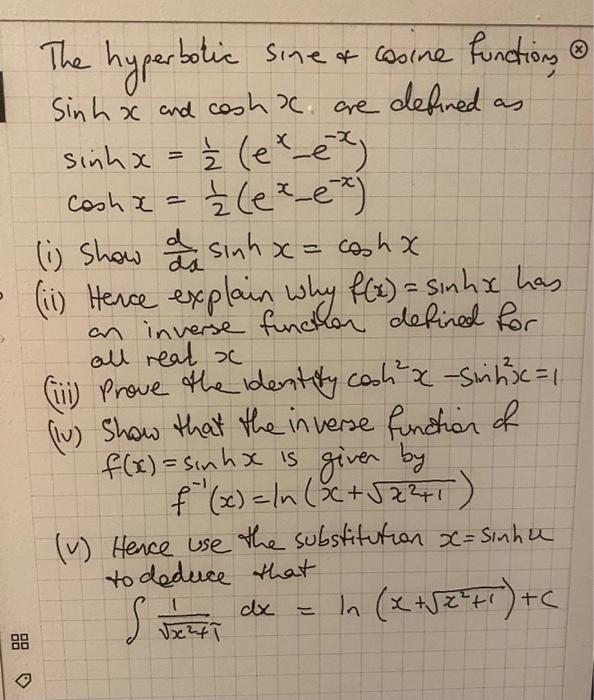 The hyperbolic sine & cosine functions,
Sinh x and cosh x are defined as
sinh x = ½ (eˣ - e⁻ˣ)
cosh x = ½ (eˣ - e⁻ˣ)
(i) Show d/dx sinh x = cosh x
(ii) Hence explain why f(x) = sinh x has
an inverse function defined for
all real x
(iii) Prove the identity cosh²x - sinh²x = 1
(iv) Show that the inverse function of
f(x) = sinh x is given by
f⁻¹(x) = ln (x + √(x²+1))
(v) Hence use the substitution x = sinh u
to deduce that
∫ 1/√(x²+1) dx = ln (x + √(x²+1)) + c